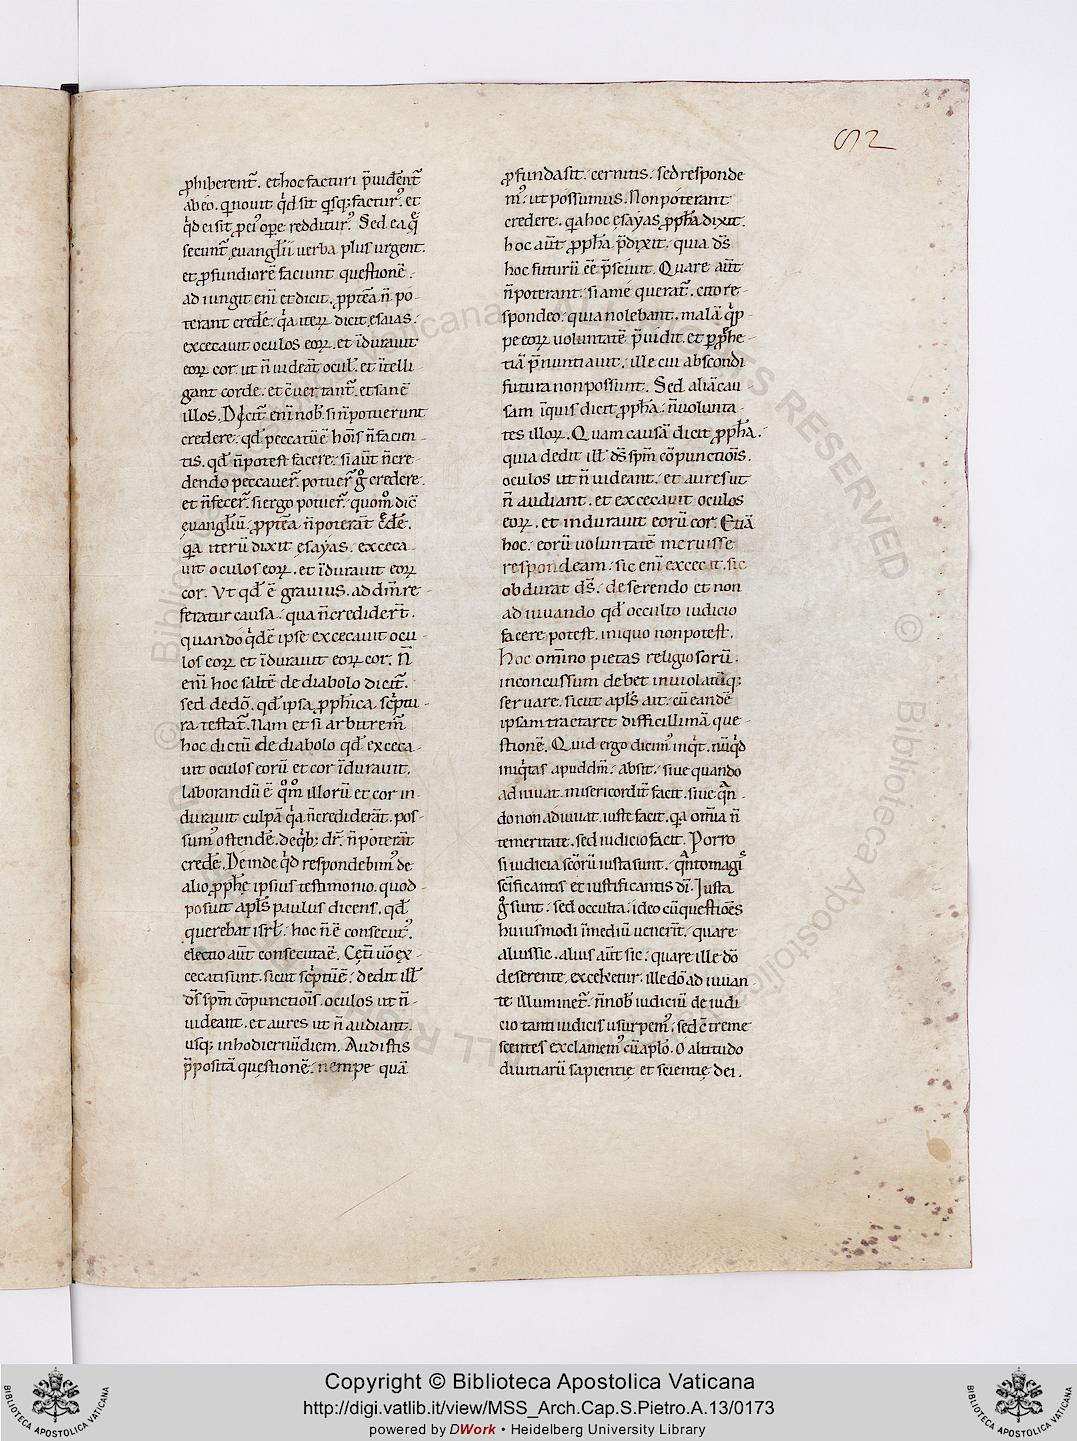 ꝓhiberent̃. et hoc facturi p̃uiderent̃
ab eo. qui nouit q̇d sit qͥsq; facturꝰ. et
q̇d ei sit ꝓ eiꝰ oꝑe redditurꝰ. Sed ea q̨
secunt̃ euangłii uerba plus urgent.
et ꝓfundiorē faciunt questionē.
adiungit eni et dicit. ꝓpt̃ea n̄ po
terant cređe. q̇a iteꝝ dicit esaias.
excecauit oculos eoꝝ. et īdurauit
eoꝝ cor. ut n̄ uideāt oculł. et ītelli
gant corde. et c̄uertant̃. et sanē
illos. Dicit̃ eni nob̄. si n̄ potuerunt
credere. qđ peccatū ē hoīs n̄ facien
tis. qđ n̄ potest facere. si aūt n̄ cre
dendo peccauer̄. potuer̄ g̊ credere.
et n̄ fecer̄. si ergo potuer̄. quom̊ dic̄
euangłiū. ꝓpt̃ea n̄ poterāt c̃đe.
qͥa iterū dixit esayas. exceca
uit oculos eoꝝ. et īdurauit eoꝝ
cor. Vt qđ ē grauius. ad dm̄ re
feratur causa. qua n̄ credider̄t.
quando q̇dē ipse excecauit ocu
los eoꝝ et īdurauit eoꝝ cor. N̄
eni hoc saltē de diabolo dicit̃.
sed de dō. qđ ipsa ꝓpħica sc̓ptu
ra testat̃. Nam et si arbitrem̄
hoc dictū de diabolo qđ exceca
uit oculos eorū et cor īdurauit.
laborandū ē qm̊ illorū et cor in
durauit culpā q̇a n̄ crediderāt. pos
sumꝰ ostendē. de q̇b; dr̄. n̄ poterāt
cređe. Deinde q̇d respondebimꝰ de
alio ꝓpħe ipsius testimonio. quod
posuit apłs paulus dicens. qđ
querebat isrł. hoc n̄ ē consecutꝰ.
electio aūt consecuta ē. Ceti u̇o ex
cecati sunt. sicut sc̓ptū ē. dedit illł
ds̄ spm̄ cōpunctiōis. oculos ut n̄
uideant. et aures ut n̄ audiant.
usq; in hodiernū diem. Audistis
p̄positā questionē. nempe quā
ꝓfunda sit. cernitis. sed responde
mꝰ. ut possumus. Non poterant
credere. qͥa hoc esayas ꝓpħa dixit.
hoc aūt ꝓpħa p̄dixit. quia ds̄
hoc futurū eē p̄sciuit. Quare aūt
n̄ poterant. si a me querat̃. cito re
spondeo. quia nolebant. malā q̇p
pe eoꝝ uoluntatē p̄uidit. et ꝑ ꝓpħe
tiā p̄nuntiauit. ille cui abscondi
futura non possunt. Sed aliā cau
sam inquis dicit ꝓpħa. n̄ uolunta
tes illoꝝ. Quam causā dicit ꝓpħa.
quia dedit illł ds̄ spm̄ cōpunctiōis.
oculos ut n̄ uideant. et aures ut
n̄ audiant. et excecauit oculos
eoꝝ. et indurauit eorū cor. Etiā
hoc. eorū uoluntatē meruisse
respondeam. sic eni excecat. sic
obdurat ds̄. deserendo et non
adiuuando qđ occulto iudicio
facere potest. iniquo non potest.
Hoc omīno pietas religiosorū.
inconcussum debet inuiolatūq;
seruare. sicut apłs ait. cū eandē
ipsam tractaret difficillimā que
stionē. Quid ergo dicemꝰ inq̇t. nūq̇d
iniq̇tas apud dm̄. absit. siue quando
adiuuat. misericordit̃ facit. siue q̃n
do non adiuuat. iuste facit. qͥa omīa n̄
temeritate. sed iudicio facit. Porro
si iudicia sc̄orū iusta sunt. q̃nto magis
sc̄ificantis et iustificantis di. Iusta
g̊ sunt. sed occulta. ideo cū questiōes
huiusmodi ī mediū uenerīt. quare
alius sic. alius aūt sic. quare ille dō
deserente. excecetur. ille dō adiuuan
te illuminet̃. n̄ nob̄ iudiciū de iudi
cio tanti iudicis usurpemꝰ. sed c̄treme
scentes exclamemꝰ cū apło. O altitudo
diuitiarū sapientię et scientię dei.
Copyright © Biblioteca Apostolica Vaticana
http://digi.vatlib.it/view/MSS_Arch.Cap.S.Pietro.A.13/0173
powered by DWork • Heidelberg University Library